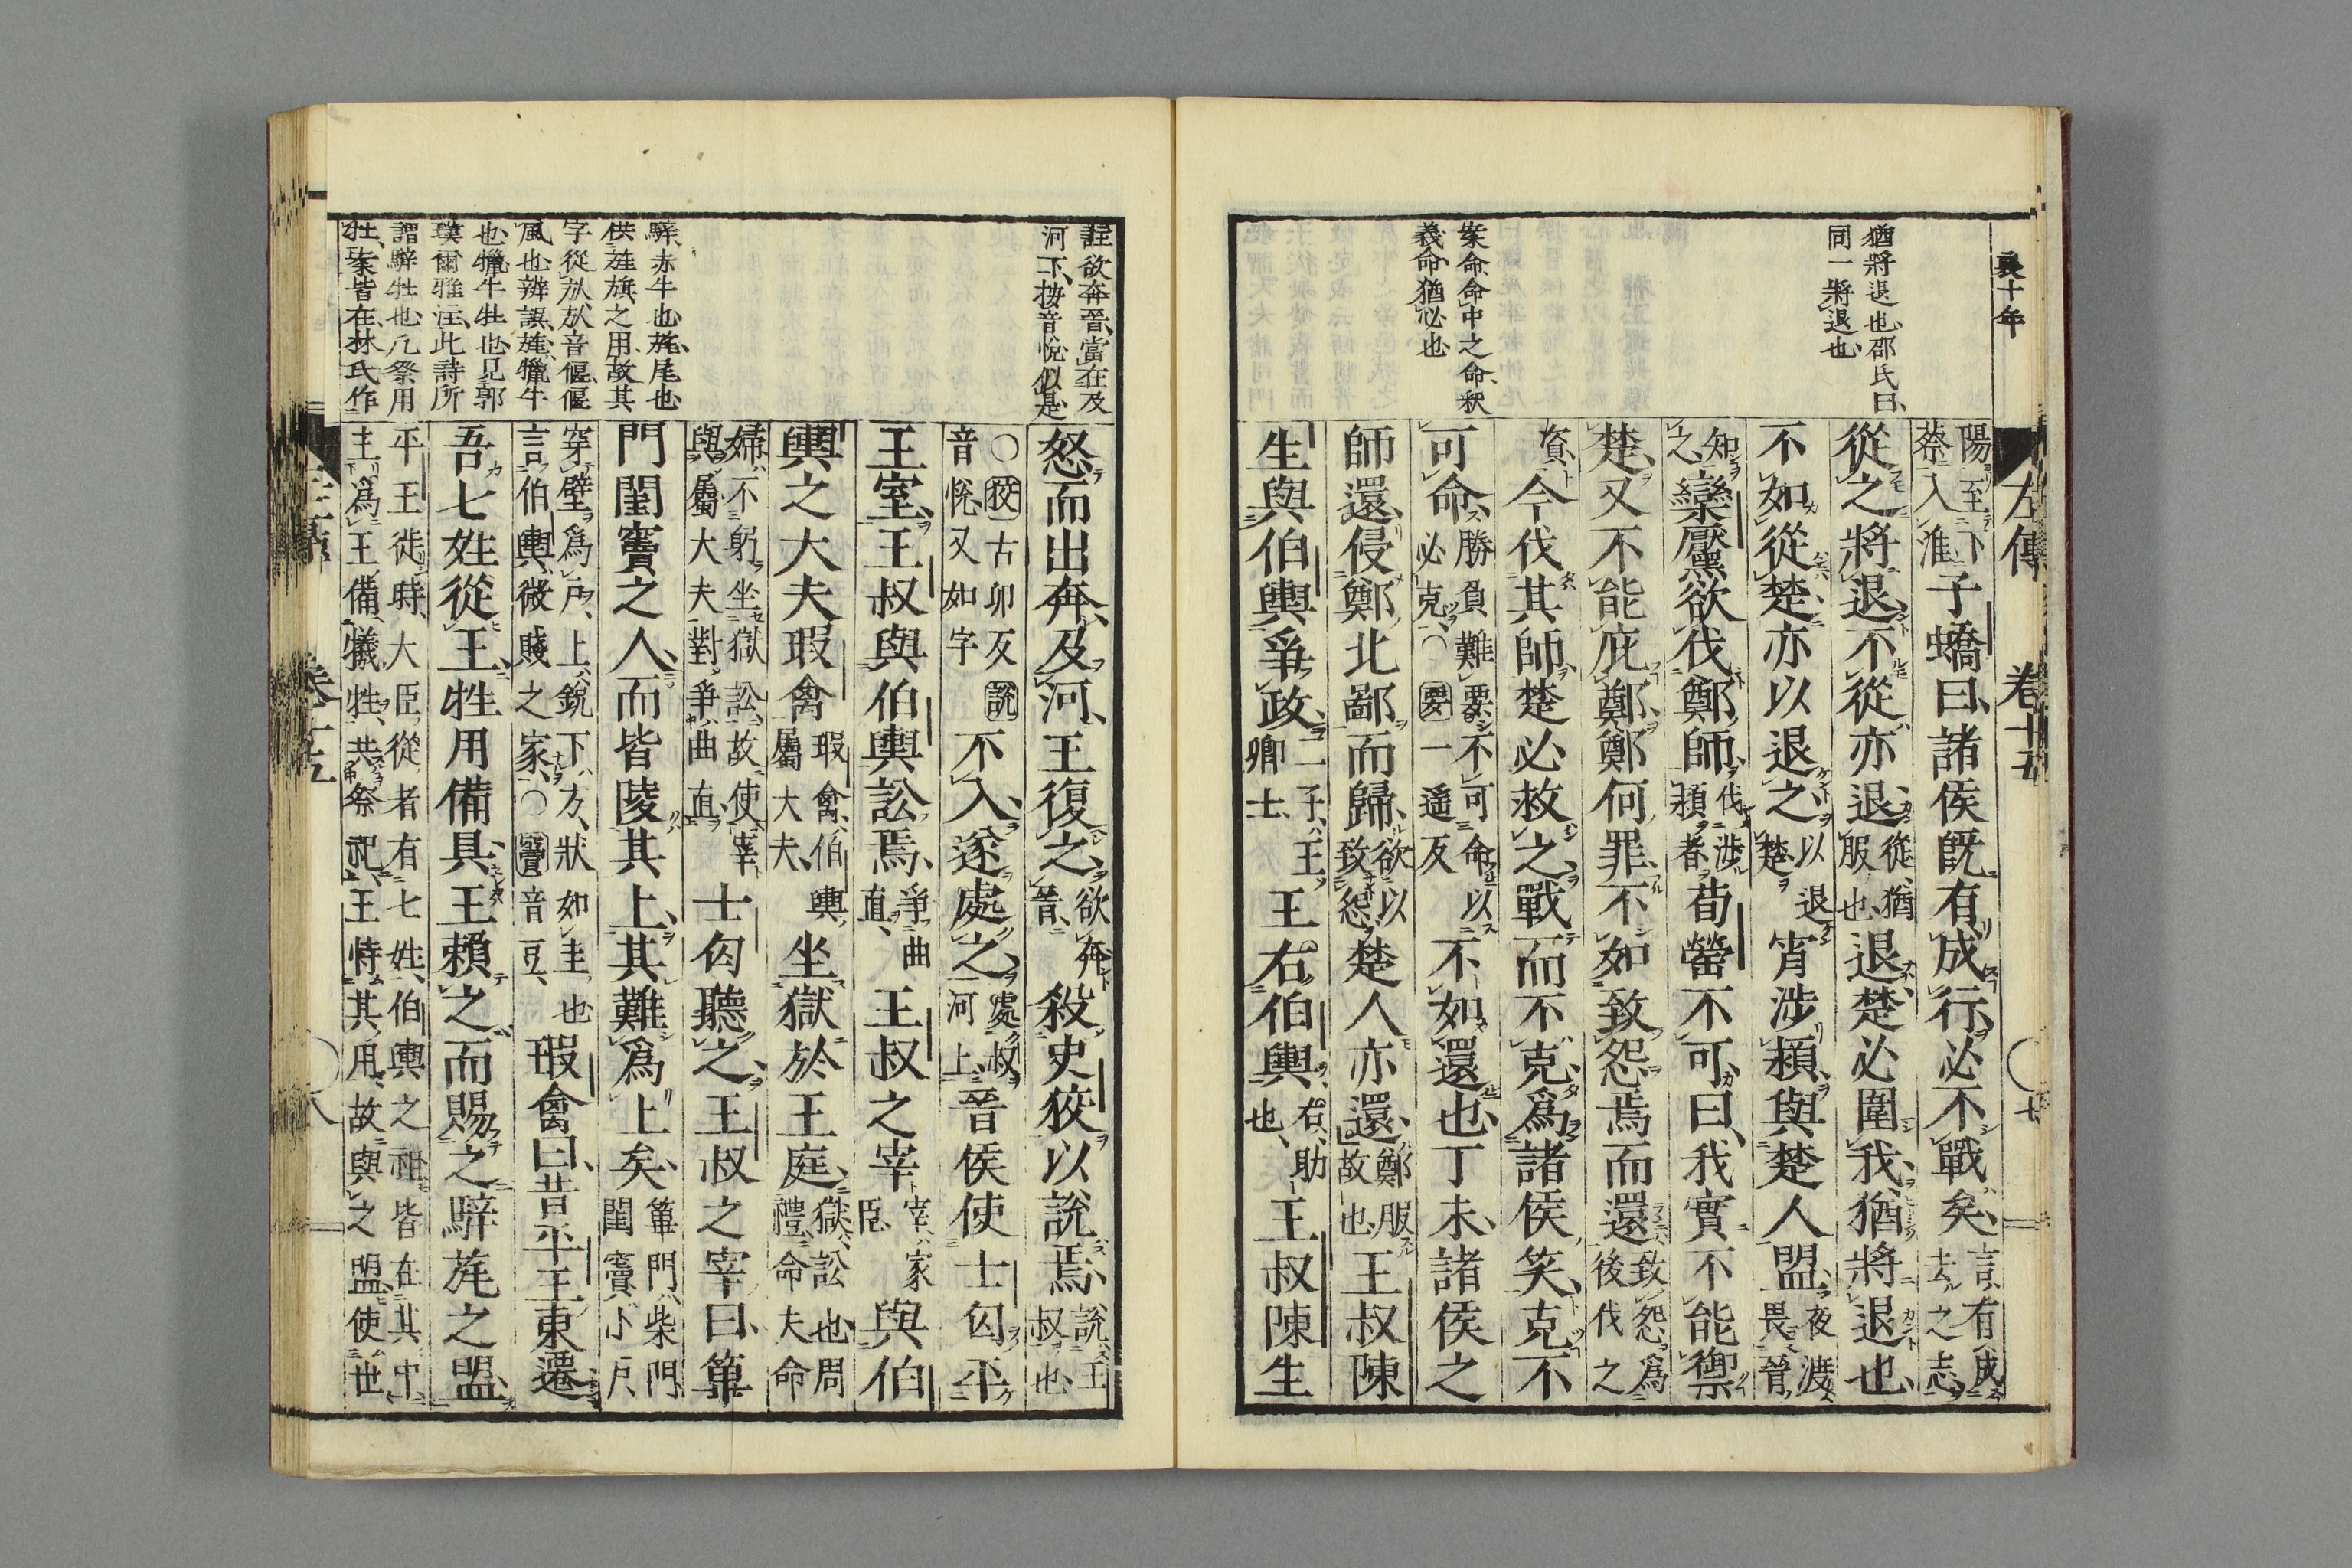 襄十年
左傳 卷十五 七
猶將退也、邵氏曰、
同一將退也、
案命、命中之命、釈
義、命猶必也
陽至下
蔡入淮
子蟜曰、諸侯既有成行必不戰矣、
言有成
去之志、
從之將退不從亦退
從猶
服也、
退、楚必圍我、猶將退也、
不如從楚亦以退之
以退
楚、
宵涉潁與楚人盟、
夜渡
畏晉
知
之、
欒黶欲伐鄭師、
伐涉
潁者、
荀罃不可、曰、我實不能禦
楚、又不能庇鄭、鄭何罪、不如致怨焉而還
致怨、爲
後伐之
資、
今伐其師楚必救之戰而不克、爲諸侯笑、克不
可命、
勝負難要、不可命以
必克、○要一遥反
不如還也、丁未、諸侯之
師還、侵鄭北鄙而歸、
欲以
致怨、
楚人亦還、
鄭服
故也、
王叔陳
生與伯輿爭政、
二子、王
卿士、
王右伯輿、
右、助
也、
王叔陳生
註欲奔晉、當在及
河下、按音悅似是
騂、赤牛也、旄、尾也
供旌旗之用、故其
字從㫃、㫃音偃、偃
風也、辨誤、旄、犣牛
也、犣牛牡也、見郭
璞爾雅注、此詩所
謂騂牡也、凡祭用
牡、案皆在林氏作
怒而出奔、及河、王復之、
欲奔
晉、
殺史狡以說焉、
說、王
叔也、
○狡古卯反說
音悅又如字
不入、遂處之、
處叔
河上、
晉侯使士匄平
王室、王叔與伯輿訟焉、
爭曲
直、
王叔之宰
宰、家
臣、
與伯
輿之大夫瑕禽
瑕禽、伯輿
屬大夫、
坐獄於王庭、
獄、訟也、周
禮、命夫命
婦不躬坐獄訟、故使宰
與屬大夫對爭曲直、
士匄聽之、王叔之宰曰、篳
門閨竇之人、而皆陵其上、其難爲上矣、
篳門、柴門
閨竇、小戶、
穿壁爲戶、上銳下方、狀如圭也
言伯輿微賤之家、○竇音豆、
瑕禽曰、昔平王東遷
吾七姓從王、牲用備具、王賴之而賜之騂旄之盟、
平王徙時、大臣從者有七姓、伯輿之祖皆在其中、
主爲王備犧牲、共祭祀、王恃其用、故與之盟使世